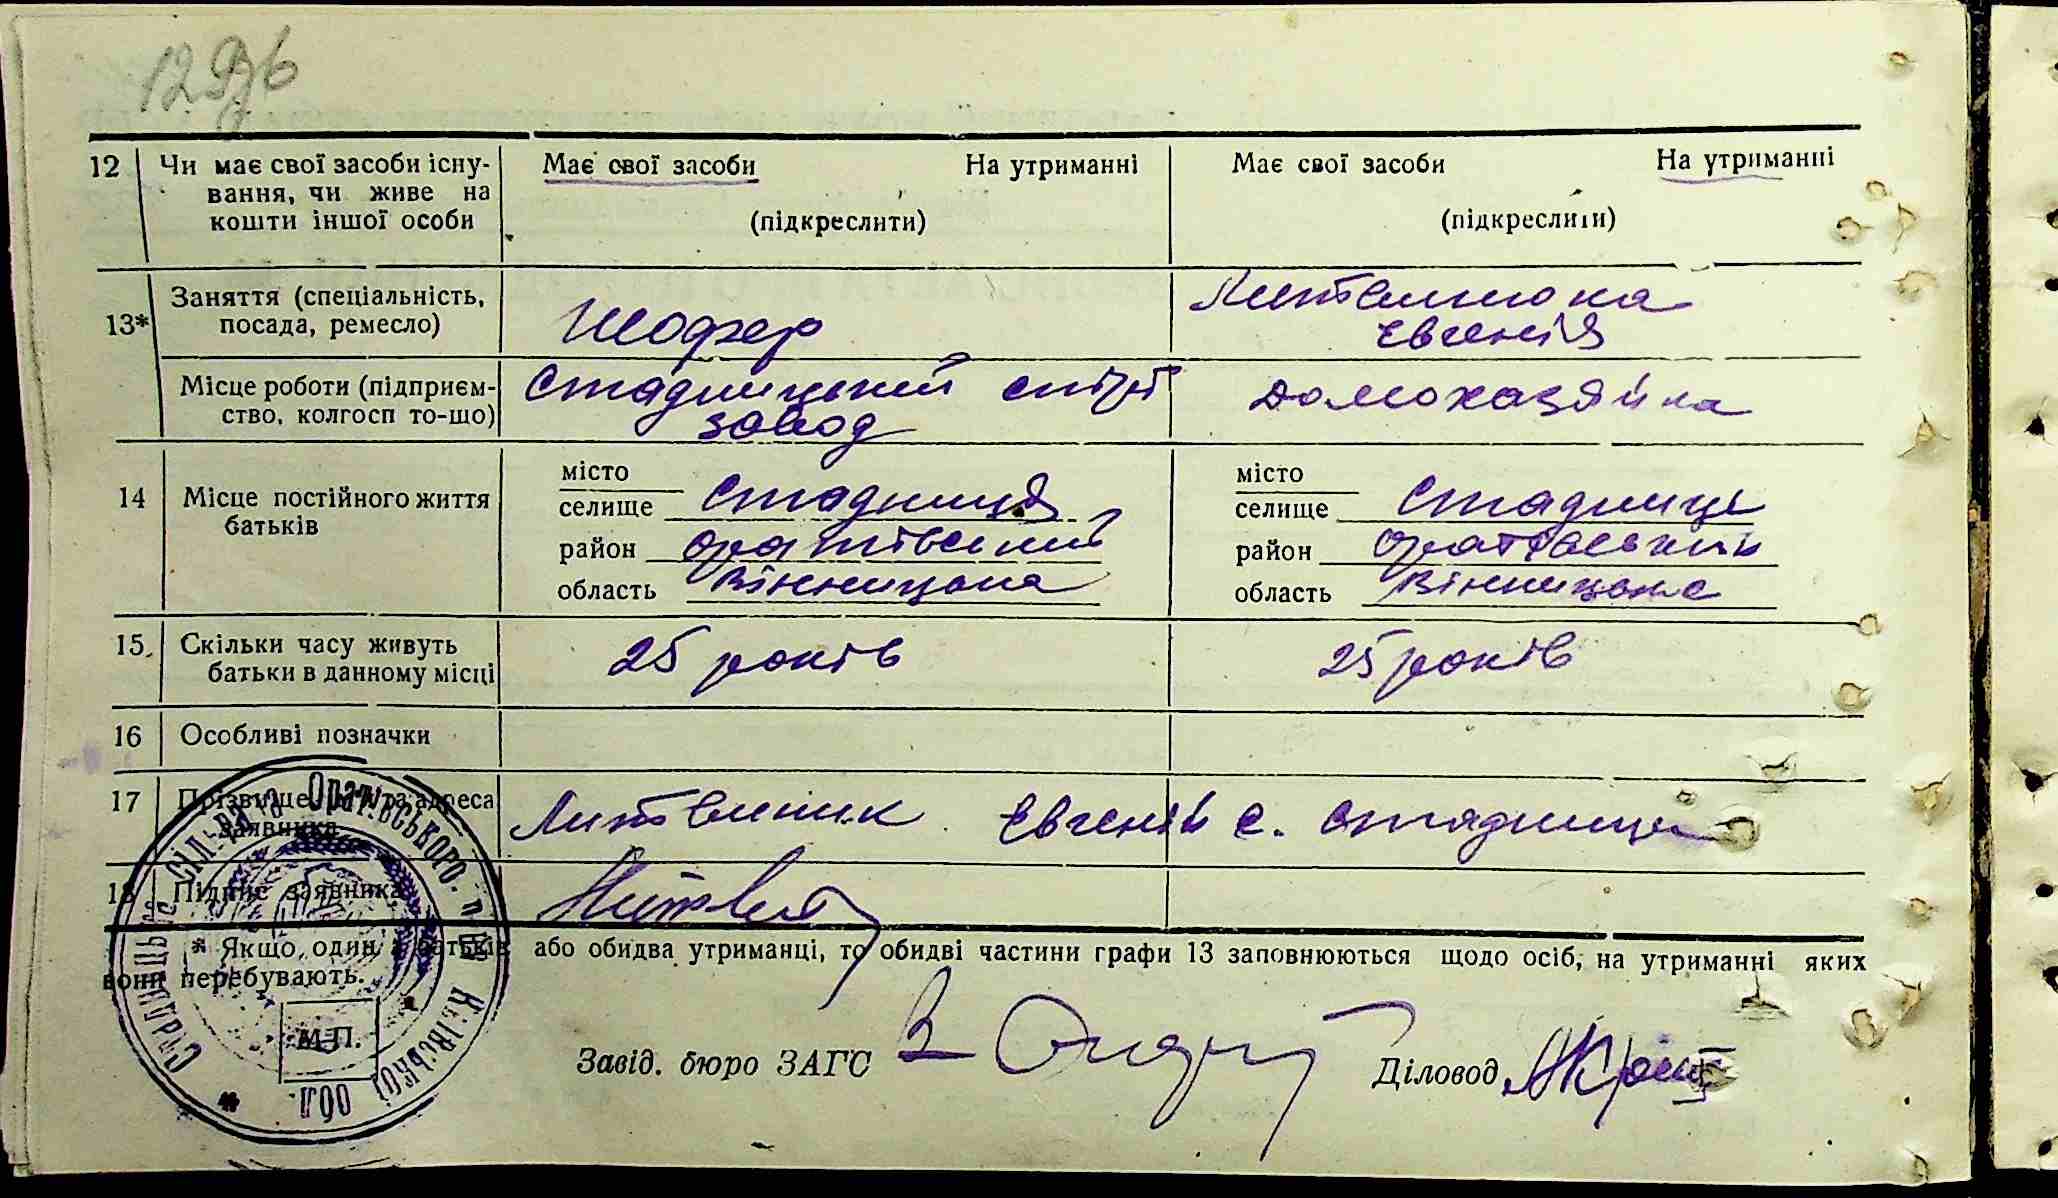 12
12 Чи має свої засоби існу- Має свої засоби На утриманні Має свої засоби На утриманні
вання, чи живе на
кошти іншої особи (підкреслити) (підкреслити)
13* Заняття (спеціальність, Литвинюка
посада, ремесло) Шофер Евгенія
Місце роботи (підприєм- Стадницький спірт Домохазяйка
ство, колгосп то-що) завод
14 Місце постійного життя місто місто
батьків селище Стадниця селище Стадниця
район Оратівський район Оратівський
область Вінницька область Вінницька
15. Скільки часу живуть 25 років 25 років
батьки в данному місці
16 Особливі позначки
17 Прізвище, ім'я та адреса Литвинюк Евгеній с. Стадниця
заявника
18 Підпис заявника
* Якщо один з батьків або обидва утриманці, то обидві частини графи 13 заповнюються щодо осіб, на утриманні яких
вони перебувають.
М.П.
Завід. бюро ЗАГС Діловод